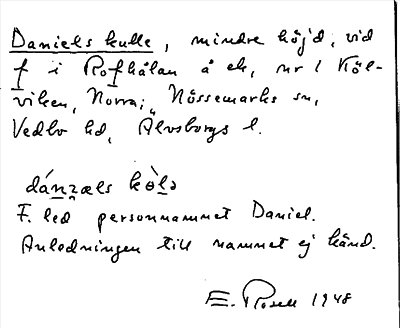 Daniels kulle, mindre höjd, vid
f i Rofhålan å ek, nr 1 Köl-
viken, Norra, Nössemarks sn,
Vedbo hd, Älvsborgs l.
dánzæls kòlə
F. led personnamnet Daniel.
Anledningen till namnet ej känd.
E. Rosell 1948